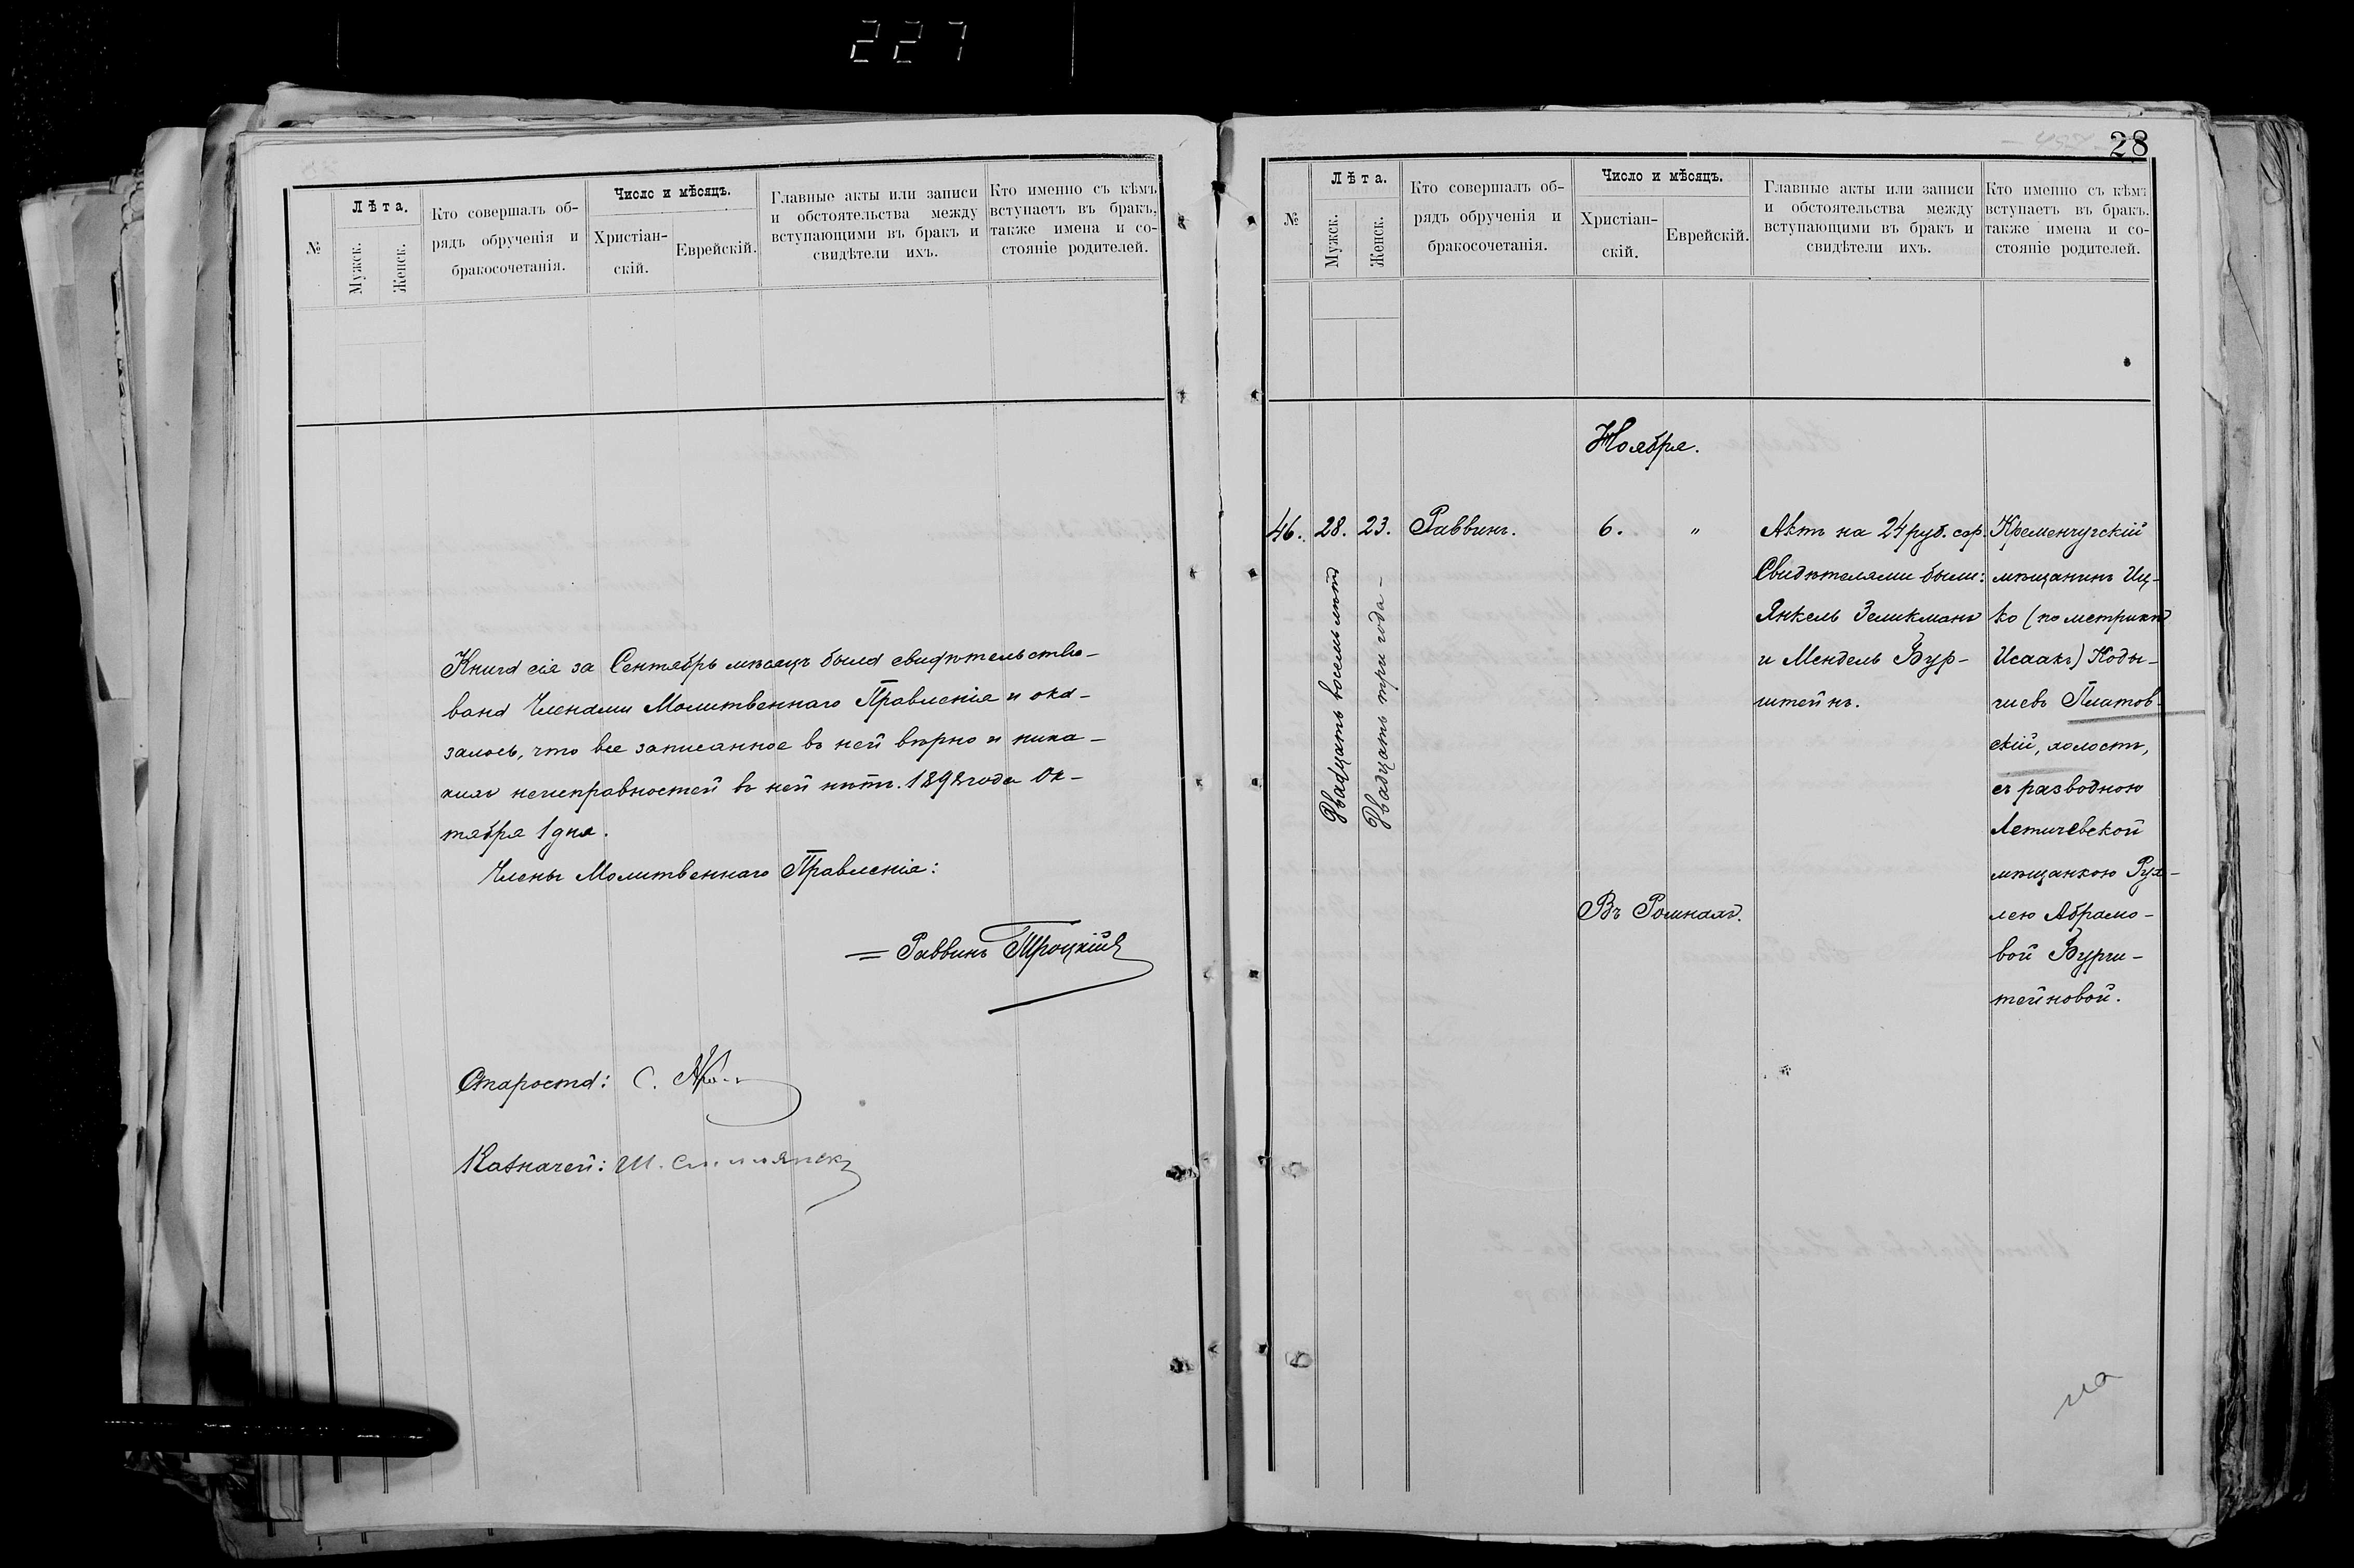 227
№
Лѣта.
Мужск.
Женск.
Кто совершалъ об-
рядъ обрученія и
бракосочетанія.
Число и мѣсяцъ.
Христіан-
скій.
Еврейскій.
Главные акты или записи
и обстоятельства между
вступающими въ бракъ и
свидѣтели ихъ.
Кто именно съ кѣмъ
вступаетъ въ бракъ,
также имена и со-
стояніе родителей.
Книга сія за Сентябрь мѣсяцъ была свидѣтельство-
вана Членами Молитвеннаго Правленія и ока-
залось, что все записанное въ ней вѣрно и ника-
кихъ неисправностей въ ней нѣтъ. 1892 года Ок-
тября 1 дня.
Члены Молитвеннаго Правленія:
Раввинъ Троцкій
Староста: С.
Казначей: Ш.
28
№
Лѣта.
Мужск.
Женск.
Кто совершалъ об-
рядъ обрученія и
бракосочетанія.
Число и мѣсяцъ.
Христіан-
скій.
Еврейскій.
Главные акты или записи
и обстоятельства между
вступающими въ бракъ и
свидѣтели ихъ.
Кто именно съ кѣмъ
вступаетъ въ бракъ.
также имена и со-
стояніе родителей.
Ноября.
46.
28.
Двадцать восемь лѣтъ
23.
Двадцать три года -
Раввинъ.
6.
"
Въ Ромнахъ.
Актъ на 24 руб. сер.
Свидѣтелями были:
Янкель Зеликманъ
и Мендель Бур-
штейнъ.
Кременчугскій
мѣщанинъ Иц-
ко (по метрикѣ
Исаакъ) Коды-
чиевъ Платов-
скій, холостъ,
съ разводною
Летичевской
мѣщанкою Рух-
лею Абрамо-
вой Бурш-
тейновой.